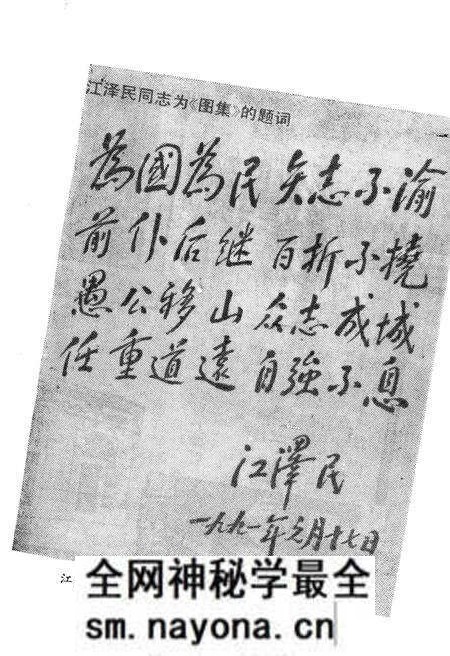 江泽民同志为《图集》的题词
為國為民 矢志不渝
前仆后继 百折不撓
愚公移山 众志成城
任重道遠 自強不息
江澤民
一九九一年元月十七日
江
全网神秘学最全
sm.nayona.cn